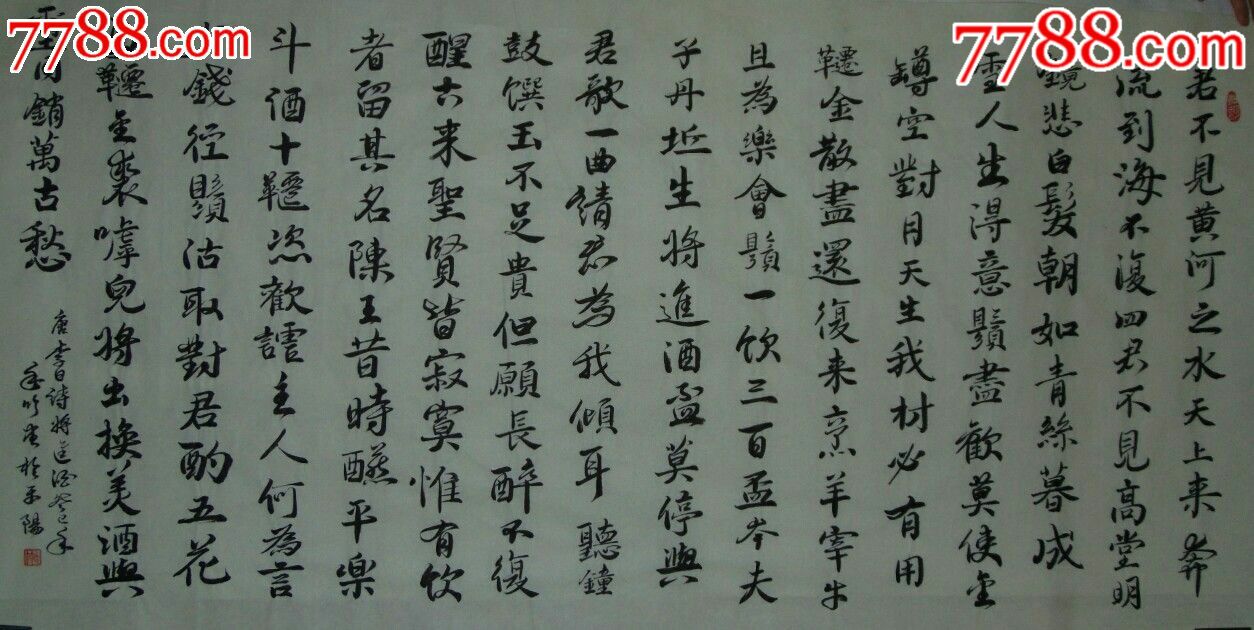 君不見黄河之水天上来奔
流到海不復回君不見高堂明
鏡悲白髮朝如青絲暮成
雪人生得意鬚盡歡莫使金
罇空對月天生我材必有用
韆金散盡還復来烹羊宰牛
且為樂會鬚一飲三百盃岑夫
子丹坵生將進酒盃莫停與
君歌一曲請君為我傾耳聽鐘
鼓馔玉不足貴但願長醉不復
醒古来聖賢皆寂寞惟有飲
者留其名陳王昔時醼平樂
斗酒十韆恣歡謔主人何為言
少錢徑鬚沽取對君酌五花
馬韆金裘嘑兒將出換美酒與
爾同銷萬古愁
唐李白詩將進酒癸巳年
於南陽
7788.com
7788.com